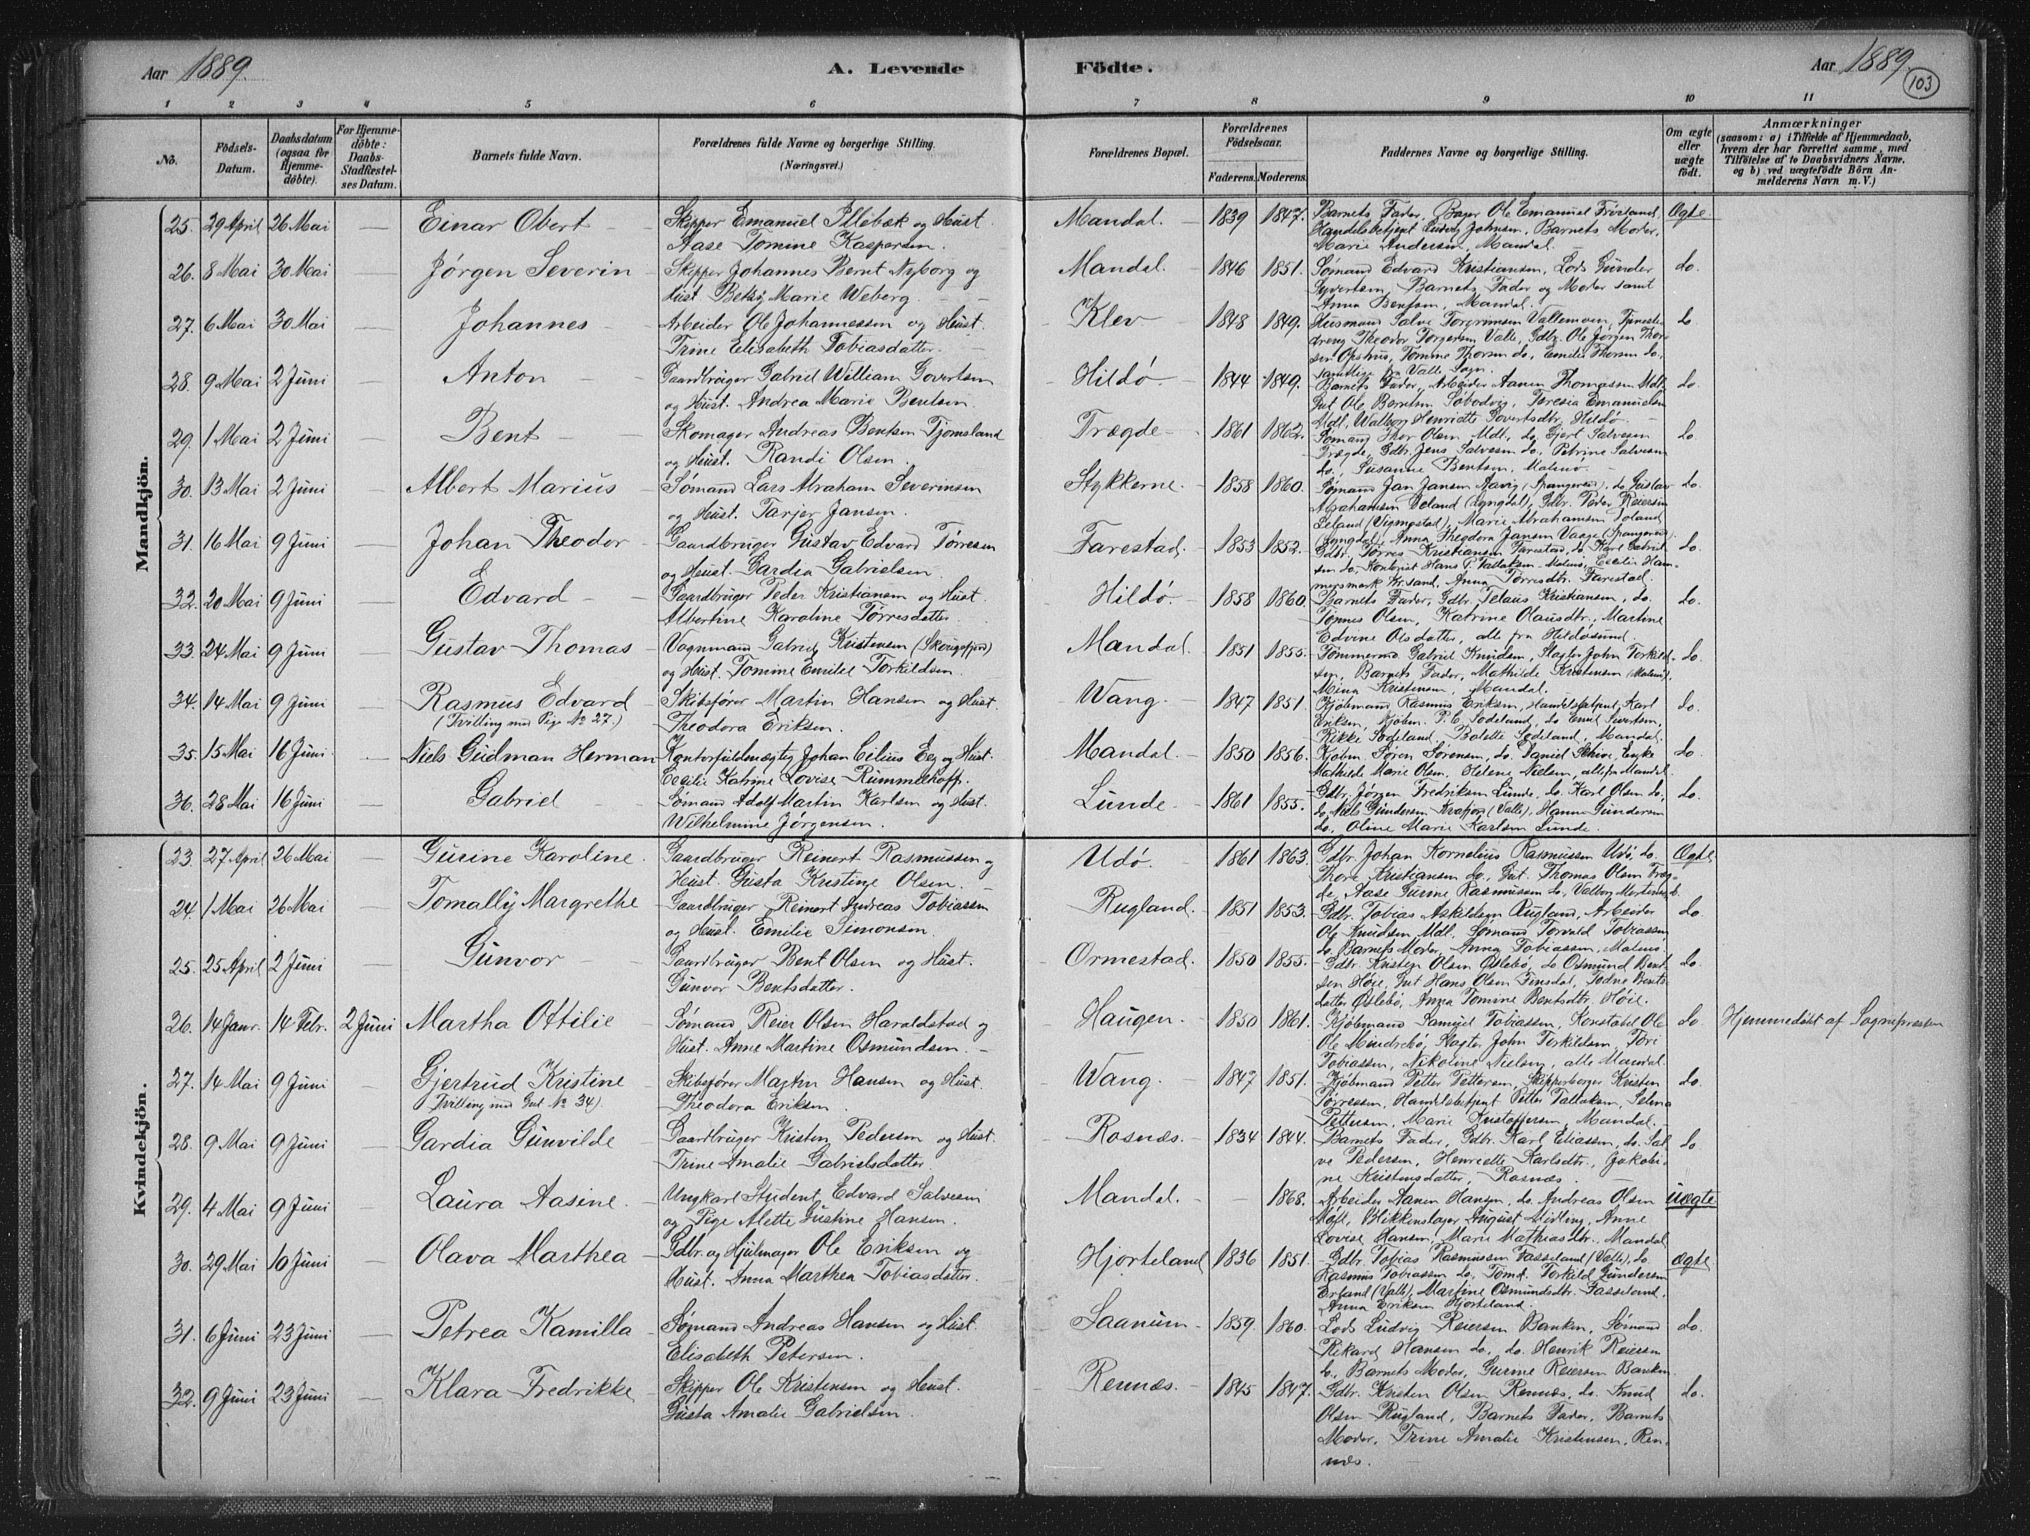 Aar 1889.
A. Levende Födte.
Aar 1889.
103
1 2 3 4 5 6 7 8 9 10 11
No.
Födsels-
Datum.
Daabsdatum
(ogsaa for
Hjemme-
döbte).
For Hjemme-
döbte:
Daabs-
Stadfæstel-
ses Datum.
Barnets fulde Navn.
Forældrenes fulde Navne og borgerlige Stilling.
(Næringsvei.)
Forældrenes Bopæl.
Forældrenes
Födselsaar.
Faderens. Moderens.
Faddernes Navne og borgerlige Stilling.
Om ægte
eller
uægte
født.
Anmærkninger
(saasom: a) i Tilfælde af Hjemmedaab,
hvem der har forrettet samme, med
Tilföielse af to Daabsvidners Navne,
og b) ved uægtefödte Börn An-
melderens Navn m. V.)
Mandkjön.
25. 29 April 26 Mai — Einar Obert — Skipper Emanuel Illebæk og Hust. Aase Tomine Kaspersen. Mandal. 1839 1847. Barnets Fader, Bager Ole Emanuel Frøisland, Handelsbetjent Ludvig Johnsen, Barnets Moder, Marie Andersen, Mandal. Ægte
26. 8 Mai 30 Mai — Jørgen Severin — Skipper Johannes Bernt Nyborg og Hust. Betsy Marie Weberg. Mandal. 1846 1851. Sømand Edvard Kristiansen, Lods Gunder Syvertsen, Barnets Fader og Moder samt Anna Bentsen, Mandal. do.
27. 6 Mai 30 Mai — Johannes — Arbeider Ole Johannessen og Hust. Trine Elisabeth Tobiasdatter. Klev 1848 1849. Husmand Salve Torgrimsen Vallemoen, Tjenestedreng Theodor Torgersen Valle, Gdbr. Ole Jørgen Thorsen Opstrus, Tomine Thorsen do, Emilie Thorsen do, samtlige fra Valle Sogn. do
28. 9 Mai 2 Juni — Anton — Gaardbruger Gabriel William Govertsen og Hust. Andrea Marie Bentsen. Hildø. 1844 1849. Barnets Fader, Arbeider Aanen Thomassen Mdl. Gut Ole Berntsen Søbodvig, Teresia Emanuelsen Mdl, Walborg Henriette Govertsdtr. Hildø. do.
29. 1 Mai 2 Juni — Bent — Skomager Andreas Bentsen Tjomsland og Hust. Randi Olsen. Trægde 1861 1862. Sømand Thor Olsen Mdl, do Gjert Salvesen Trægde, Gdbr. Jens Salvesen do, Petrine Salvesen do, Susanne Bentsen, Malmø. do.
30. 13 Mai 2 Juni — Albert Marius — Sømand Lars Abraham Severinsen og Hust. Tarjer Jansen. Stykkerne. 1858 1860. Sømand Jan Jansen Aavig (Spangereid), do Gustav Abrahamsen Foland (Lyngdal), Gdbr. Peder Reiersen Leland (Vigmostad), Marie Abrahamsen Foland (Lyngdal), Anna Theodora Jansen Vaage (Spangereid). do.
31. 16 Mai 9 Juni — Johan Theodor — Gaardbruger Gustav Edvard Tørresen og Hust. Gardia Gabrielsen. Farestad. 1853 1852. Gdbr. Tørres Kristiansen Farestad, do Karl Gabrielsen do, Hans P. Tallaksen Malmø, Cecilie Hammersmark Kr.sand, Anna Tørresdtr. Farestad. do.
32. 20 Mai 9 Juni — Edvard — Gaardbruger Peder Kristiansen og Hust. Albertine Karoline Tørresdatter. Hildø. 1858 1860. Barnets Fader, Gdbr. Kristiansen, do. Tønnes Olsen, Katrine Olausdtr, Martine Edvine Olsdatter, alle fra Hildøsund. do.
33. 24 Mai 9 Juni — Gustav Thomas — Vognmand Gabriel Kristensen (Skougsfjord) og Hust. Tomine Emilie Torkildsen. Mandal. 1851 1855. Tømmermd Gabriel Knudsen, Slagter John Torkildsen, Barnets Fader, Mathilde Kristensen (Malmø), Mina Kristensen, Mandal. do.
34. 14 Mai 9 Juni — Rasmus Edvard (Tvilling med Pige No 27.) Skibsfører Martin Hansen og Hust. Theodora Eriksen. Wang. 1847 1851. Kjøbmand Rasmus Eriksen, Handelsbetjent Karl Eriksen, Kjøbm. P. C. Sodeland, do Emil Sivertsen, Rikke Sodeland, Bolette Sodeland, Mandal. do.
35. 15 Mai 16 Juni — Niels Gudman Herman Kontorfuldmægtig Johan Cilius Eeg og Hust. Cecilie Katrine Lovise Rummelhoff. Mandal. 1850 1856. Kjøbm. Søren Sørensen, do Daniel Schive, Enke Mathilde Marie Olsen, Helene Nielsen, alle fra Mandal. do.
36. 28 Mai 16 Juni — Gabriel — Sømand Adolf Martin Karlsen og Hust. Wilhelmine Jørgensen. Lunde. 1861 1855. Gdbr. Jørgen Fredriksen Lunde, do. Karl Olsen do, do. Niels Gundersen Krafjord (Valle), Hanna Gundersen do, Oline Marie Karlsen Lunde. do.
Kvindekjön.
23. 27 April 26 Mai — Gurine Karoline. Gaardbruger Reinert Rasmussen og Hust. Gusta Kristine Olsen. Udø. 1861 1863. Gdbr. Johan Kornelius Rasmussen Udø, do. Thore Kristiansen do, Gut. Thomas Olsen Trægde, Aase Gurine Rasmussen do, Valborg Mortensen do. Ægte
24. 1 Mai 26 Mai — Tomally Margrethe Gaardbruger Reinert Andreas Tobiassen og Hust. Emilie Simonsen. Rugland. 1851 1853. Gdbr. Tobias Askildsen Rugland, Arbeider Ole Knudsen Mdl. Sømand Torvald Tobiassen do, Barnets Moder, Anna Tobiassen, Malmø. do.
25. 25 April 2 Juni — Gunvor — Gaardbruger Bent Olsen og Hust. Gunvor Bentsdatter. Ormestad. 1850 1855. Gdbr. Kristen Olsen Øslebø, do Osmund Bentsen Høie, Gut Hans Olsen Finsdal, Todne Bentsdatter Øslebø, Anna Tomine Bentsdtr. Høie. do.
26. 14 Janr. 14 Febr. 2 Juni Martha Ottilie Sømand Reier Olsen Haraldstad og Hust. Anne Martine Osmundsen. Haugen. 1850 1861. Kjøbmand Samuel Tobiassen, Konstabel Ole Ole Mindrebø, Slagter John Torkildsen, Tori Tobiassen, Nikoline Nielsen, alle Mandal. do Hjemmedøbt af Sognepræsten
27. 14 Mai 9 Juni — Gjertrud Kristine (Tvilling med Gut No 34). Skibsfører Martin Hansen og Hust. Theodora Eriksen. Wang. 1847 1851. Kjøbmand Petter Pettersen, Skipperborger Kristen Tørressen, Handelsbetjent Petter Tallaksen, Selma Pettersen, Marie Kristoffersen, Mandal. do.
28. 9 Mai 9 Juni — Gardia Gunvilde Gaardbruger Kristen Pedersen og Hust. Trine Amalie Gabrielsdatter. Rosnæs. 1834 1844. Barnets Fader, Gdbr. Karl Eliassen, do. Salve Pedersen, Henriette Karlsdtr, Jakobine Kristensdatter, Rosnæs. do
29. 4 Mai 9 Juni — Laura Aasine. Ungkarl Student Edvard Salvesen og Pige Alette Gustine Hansen. Mandal. — 1868. Arbeider Aanen Hansen, do. Andreas Olsen Møft, Blikkenslager August Midling, Anne Lovise Hansen, Marie Mathiasdtr. Mandal uægte
30. 29 Mai 10 Juni — Olava Marthea Gdbr. og Hjulmager Ole Eriksen og Hust. Anna Marthea Tobiasdatter. Hjorteland 1836 1851. Gdbr. Tobias Rasmussen Fasseland (Valle), do. Rasmus Tobiassen do, Tømd. Torkild Gundersen Erland (Valle), Martine Osmundsdtr. Fasseland, Anna Eriksen Hjorteland. ægte
31. 6 Juni 23 Juni — Petrea Kamilla Sømand Andreas Hansen og Hust. Elisabeth Petersen. Saanum. 1859 1860. Lods Ludvig Reiersen Banken, Sømand Rikard Hansen do, do. Henrik Reiersen do, Barnets Moder, Gurine Reiersen Banken do.
32. 9 Juni 23 Juni — Klara Fredrikke Skipper Ole Kristensen og Hust. Gusta Amalie Gabrielsen. Rennæs. 1845 1847. Gdbr. Kristen Olsen Rennæs, do. Knud Olsen Rugland, Barnets Fader, Barnets Moder, Trine Amalie Kristensen, Rennæs. do.